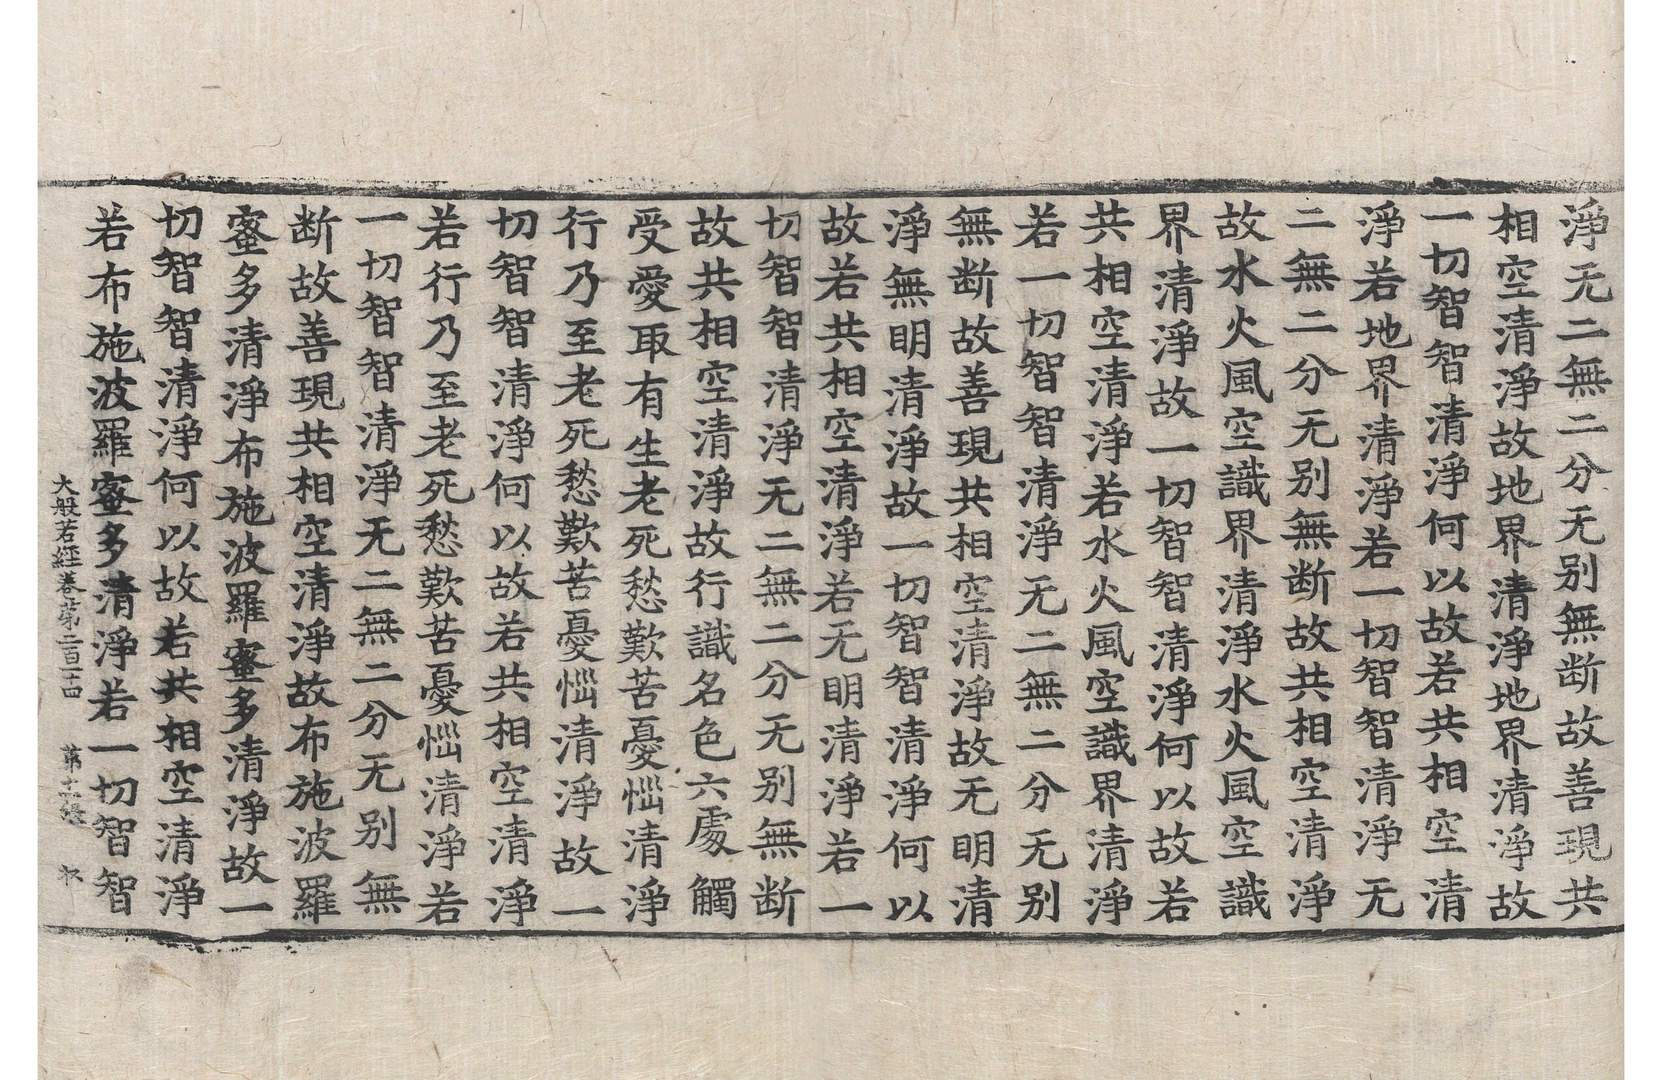 淨无二無二分无别無断故善現共
相空清淨故地界清淨地界清淨故
一切智智清淨何以故若共相空清
淨若地界清淨若一切智智清淨无
二無二分无别無断故共相空清淨
故水火風空識界清淨水火風空識
界清淨故一切智智清淨何以故若
共相空清淨若水火風空識界清淨
若一切智智清淨无二無二分无别
無断故善現共相空清淨故无明清
淨無明清淨故一切智智清淨何以
故若共相空清淨若无明清淨若一
切智智清淨无二無二分无别無断
故共相空清淨故行識名色六處觸
受愛取有生老死愁歎苦憂惱清淨
行乃至老死愁歎苦憂惱清淨故一
切智智清淨何以故若共相空清淨
若行乃至老死愁歎苦憂惱清淨若
一切智智清淨无二無二分无别無
断故善現共相空清淨故布施波羅
蜜多清淨布施波羅蜜多清淨故一
切智智清淨何以故若共相空清淨
若布施波羅蜜多清淨若一切智智
大般若經卷第